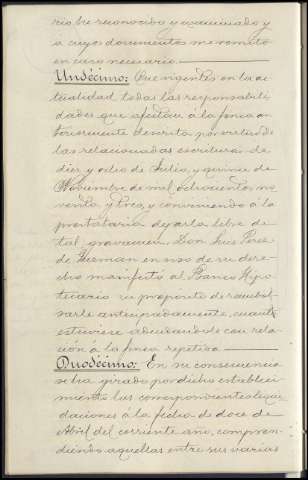 rio he reconocido y examinado y
á cuyos documentos me remito
en caso necesario.
Undécimo: Que vigentes en la ac-
tualidad todas las responsabili-
dades que afectan á la finca an-
teriormente descrita por virtud de
las relacionadas escrituras de
diez y ocho de Julio, y quince de
Noviembre de mil ochocientos no-
venta y tres, y conviniendo á la
prestataria dejarla libre de
tal gravamen, Don Luis Perez
de Guzman en uso de su dere-
cho manifestó al Banco Hipo-
tecario su propósito de reembol-
sarle anticipadamente, cuanto
estuviese adeudandole con rela-
ción á la finca repetida
Duodécimo: En su consecuencia
se ha girado por dicho estableci-
miento las correspondientes liqui-
daciones á la fecha de doce de
Abril del corriente año, compren-
diendo aquellas entre sus varias